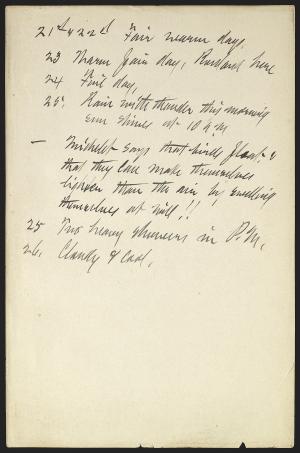 21st & 22d Fair warm days
23 Warm fair day, Rowland here
24 Fine day,
25. Rain with thunder this morning
sun shines at 10 A.M
— Michelet says that birds float &
that they can make themselves
lighter than the air by swelling
themselves at will!!
25 Two heavy showers in P.M,
26. Cloudy & cool,